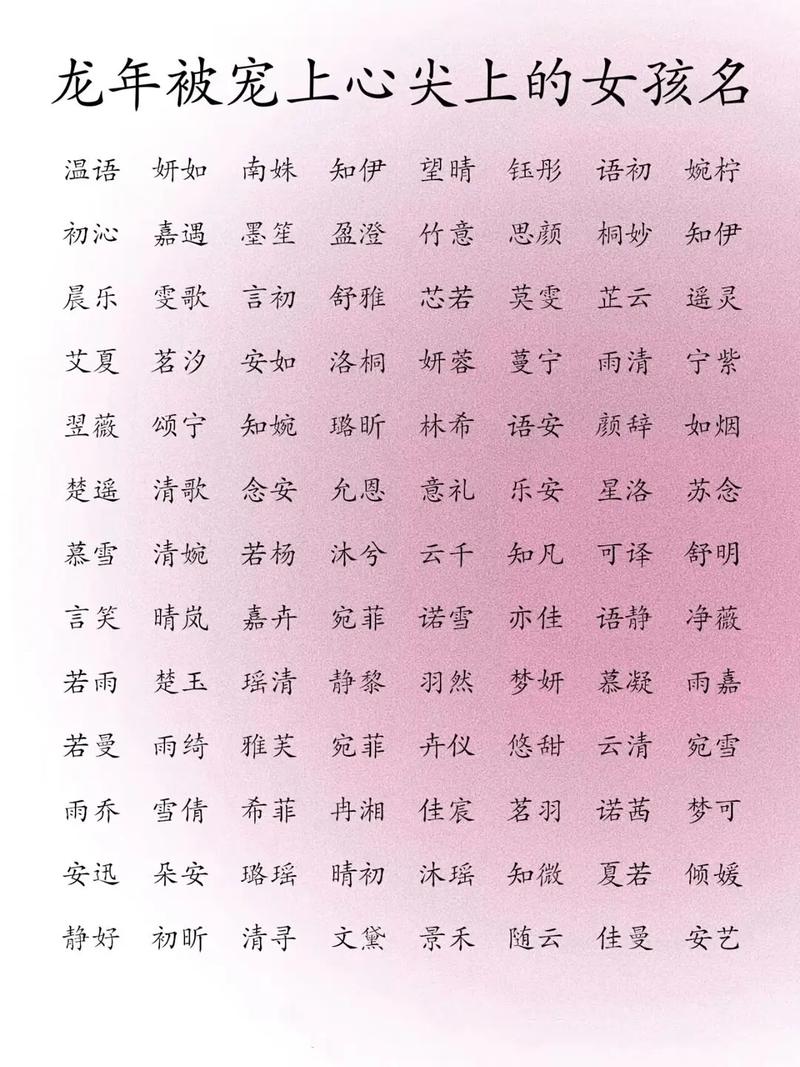 龙年被宠上心尖上的女孩名
温语 妍如 南姝 知伊 望晴 钰彤 语初 婉柠
初沁 嘉遇 墨笙 盈澄 竹意 思颜 桐妙 知伊
晨乐 雯歌 言初 舒雅 芯若 莫雯 芷云 遥灵
艾夏 茗汐 安如 洛桐 妍蓉 蔓宁 雨清 宁紫
翌薇 颂宁 知婉 璐昕 林希 语安 颜辞 如烟
楚遥 清歌 念安 允恩 意礼 乐安 星洛 苏念
慕雪 清婉 若杨 沐兮 云千 知凡 可译 舒明
言笑 晴岚 嘉卉 宛菲 诺雪 亦佳 语静 净薇
若雨 楚玉 瑶清 静黎 羽然 梦妍 慕凝 雨嘉
若曼 雨绮 雅芙 宛菲 卉仪 悠甜 云清 宛雪
雨乔 雪倩 希菲 冉湘 佳宸 茗羽 诺茜 梦可
安迅 朵安 璐瑶 晴初 沐瑶 知微 夏若 倾媛
静好 初昕 清寻 文黛 景禾 随云 佳曼 安艺